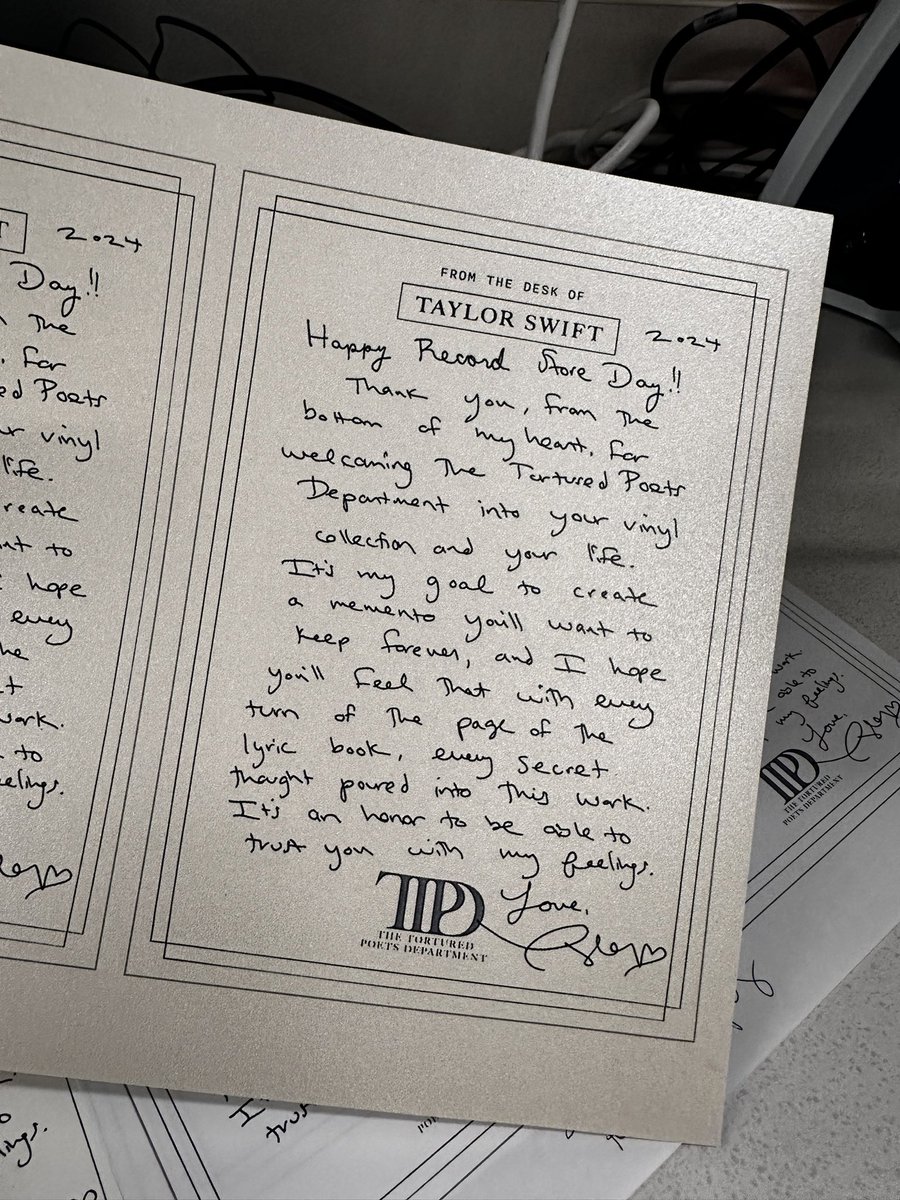 FROM THE DESK OF
TAYLOR SWIFT
2024
Happy Record Store Day!!
Thank you, from the
bottom of my heart, for
welcoming The Tortured Poets
Department into your vinyl
collection and your life.
It's my goal to create
a memento you'll want to
keep forever, and I hope
you'll feel that with every
turn of the page of the
lyric book, every secret
thought poured into this work.
It's an honor to be able to
trust you with my feelings.
Love,
TTPD
THE TORTURED
POETS DEPARTMENT
2024
Day!!
The
for
Poets
vinyl
life.
to
hope
every
work.
to
work
able to
my feelings.
Love,
TTPD
THE TORTURED
POETS DEPARTMENT